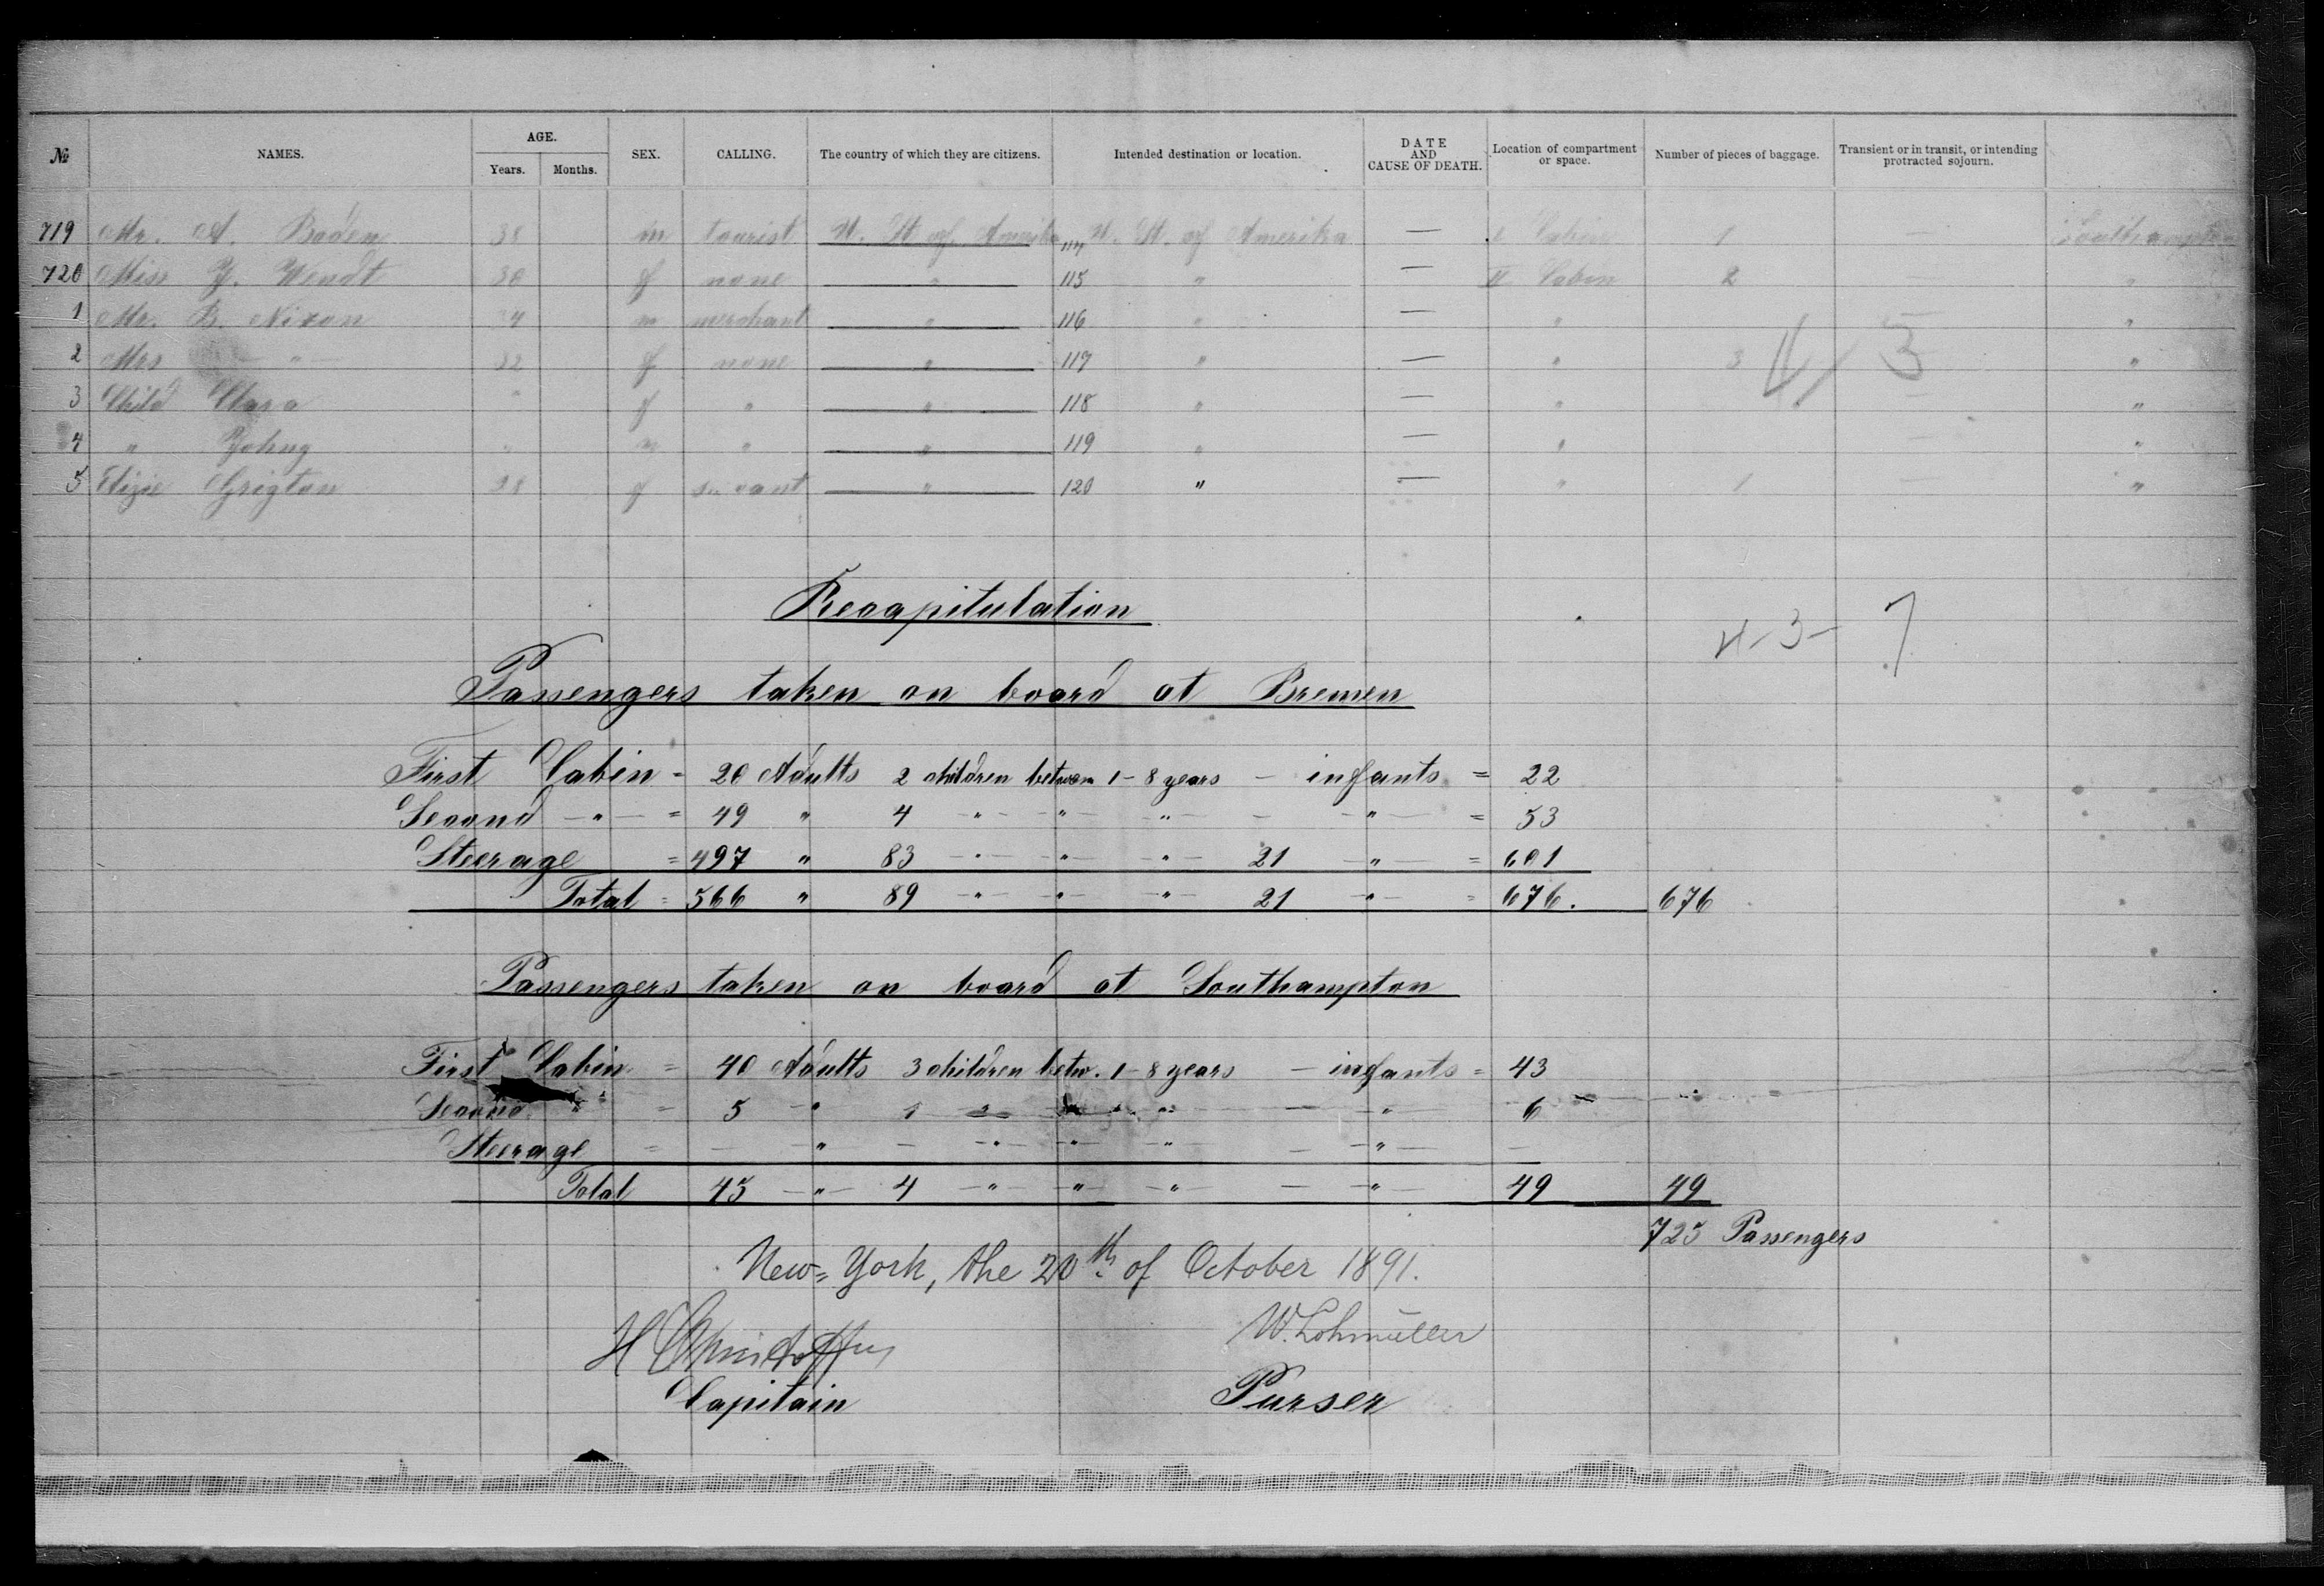 № NAMES. AGE. Years. Months. SEX. CALLING. The country of which they are citizens. Intended destination or location. DATE AND CAUSE OF DEATH. Location of compartment or space. Number of pieces of baggage. Transient or in transit, or intending protracted sojourn.
719 Mr. A. Boden 38 m tourist U. St. of Amerika 114 U. St. of Amerika — I Cabin 1 — Southampton
720 Miss Y. Wendt 30 f none " 115 " — II Cabin 2 — "
1 Mr. B. Nixon m merchant " 116 " — " — "
2 Mrs — " — 32 f none " 117 " — " 3 "
4/3
3 Child Clara f " " 118 " — " — "
4 " m " " 119 " — " — "
5 f servant " 120 " — " 1 — "
Recapitulation
4-3- 7
Passengers taken on board at Bremen
First Cabin = 20 Adults 2 children between 1-8 years — infants = 22
Second — " — = 49 " 4 — " — — " — — " — — — " — = 53
Steerage = 497 " 83 — " — — " — — " — 21 — " — = 601
Total = 566 " 89 — " — — " — — " — 21 — " — = 676. 676
Passengers taken on board at Southampton
First Cabin = 40 Adults 3 children betw. 1-8 years — infants = 43
Second " = 5 " 1 " " " — " 6
Steerage = — " — — " — — " — — " — — — " — —
Total 45 — " — 4 — " — — " — — " — — — " — 49 49
725 Passengers
New=York, the 20th of October 1891.
H Christoffers W. Lohmüller
Capitain Purser